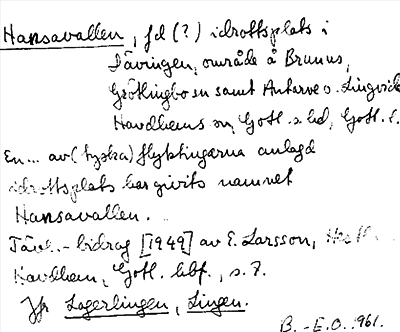 Hansavallen, fd (?) idrottsplats i
Tävringen, område å Brunns,
Grötlingbo sn samt Anterve o. Lingvide
Havdhems sn, Gotl. s hd, Gotl. l.
En... av (tyska) flyktingarna anlagd
idrottsplats har givits namnet
Hansavallen.
Tävl.-bidrag [1949] av E. Larsson,
Havdhem, Gotl. hbf., s. 7.
Jfr Lagerlingen, Lingen.
B.-E.O. 1961.